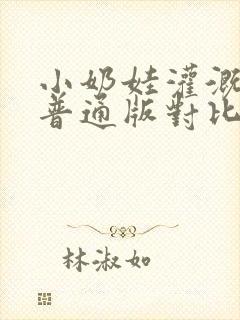 小奶娃灌溉
普通版對比
林淑如